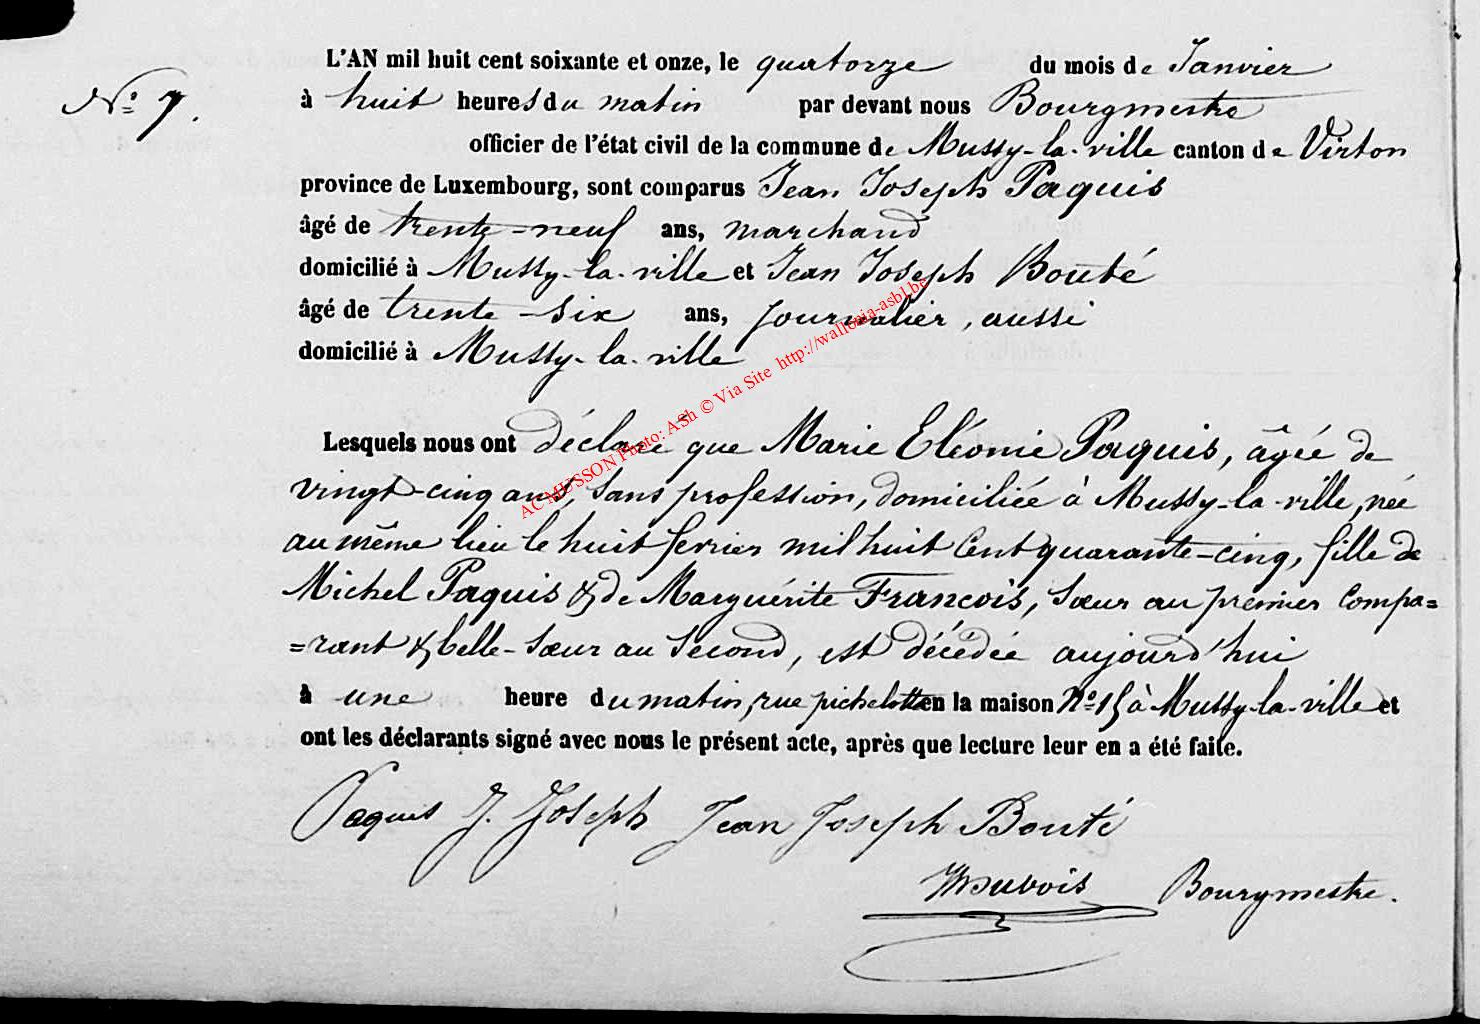 L'AN mil huit cent soixante et onze, le quatorze du mois de Janvier
N° 7.
à huit heures du matin par devant nous Bourgmestre
officier de l'état civil de la commune de Mussy-la-ville canton de Virton
province de Luxembourg, sont comparus Jean Joseph Paquis
âgé de trente-neuf ans, marchand
domicilié à Mussy-la-ville et Jean Joseph Bouté
âgé de trente-six ans, journalier, aussi
domicilié à Mussy-la-ville
ACMUSSON Photo: ASh © Via Site http://wallonia-asbl.be
Lesquels nous ont déclaré que Marie Eléonie Paquis, âgée de
vingt-cinq ans, sans profession, domiciliée à Mussy-la-ville, née
au même lieu le huit fevrier mil huit Cent quarante-cinq, fille de
Michel Paquis & de Marguérite Francois, sœur au premier Compa=
=rant & belle-sœur au Second, est décédée aujourd'hui
à une heure du matin, rue pichelotte en la maison N° 15 à Mussy-la-ville et
ont les déclarants signé avec nous le présent acte, après que lecture leur en a été faite.
Paquis J. Joseph Jean Joseph Bouté
Dubois Bourgmestre.